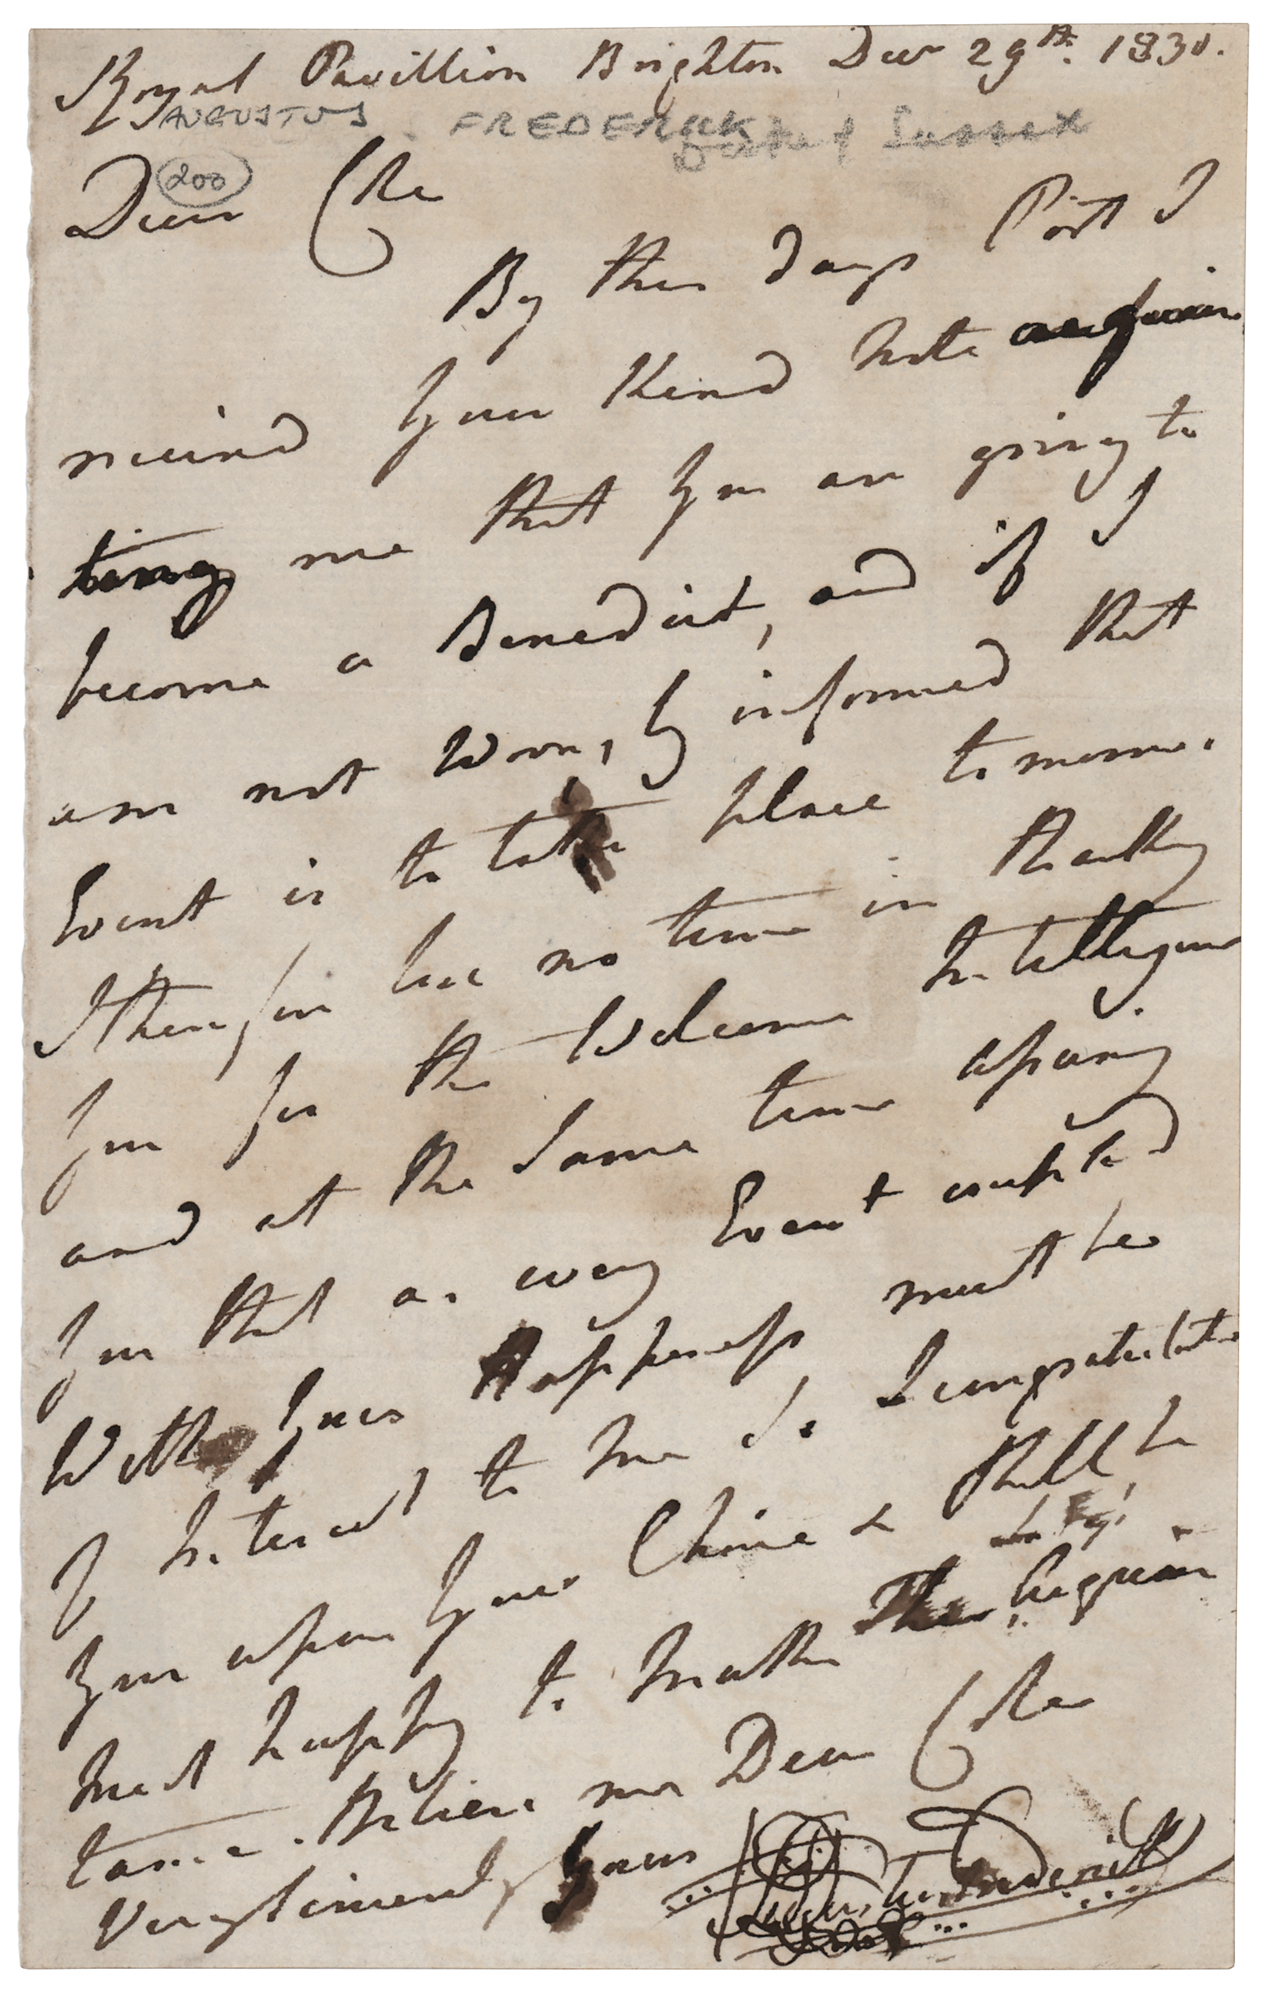 Royal Pavillion Brighton Decr 29th. 1830.
AUGUSTUS FREDERICK Duke of Sussex
200
Dear Coke
By this days Post I
received Your Kind Note acquain
ting me that You are going to
become a Benedict, and if I
am not wrong informed that
Event is to take place tomorrow.
I therefore lose no time in thanking
You for the Welcome Intelligence
and at the same time assuring
You that as every Event coupled
With Your Happiness must be
of Interest to me so I congratulate
You upon Your Choice & shall be
most happy to make The Lady's Acquain
tance. Believe me Dear Coke
Very sincerely Yours
Augustus Frederick